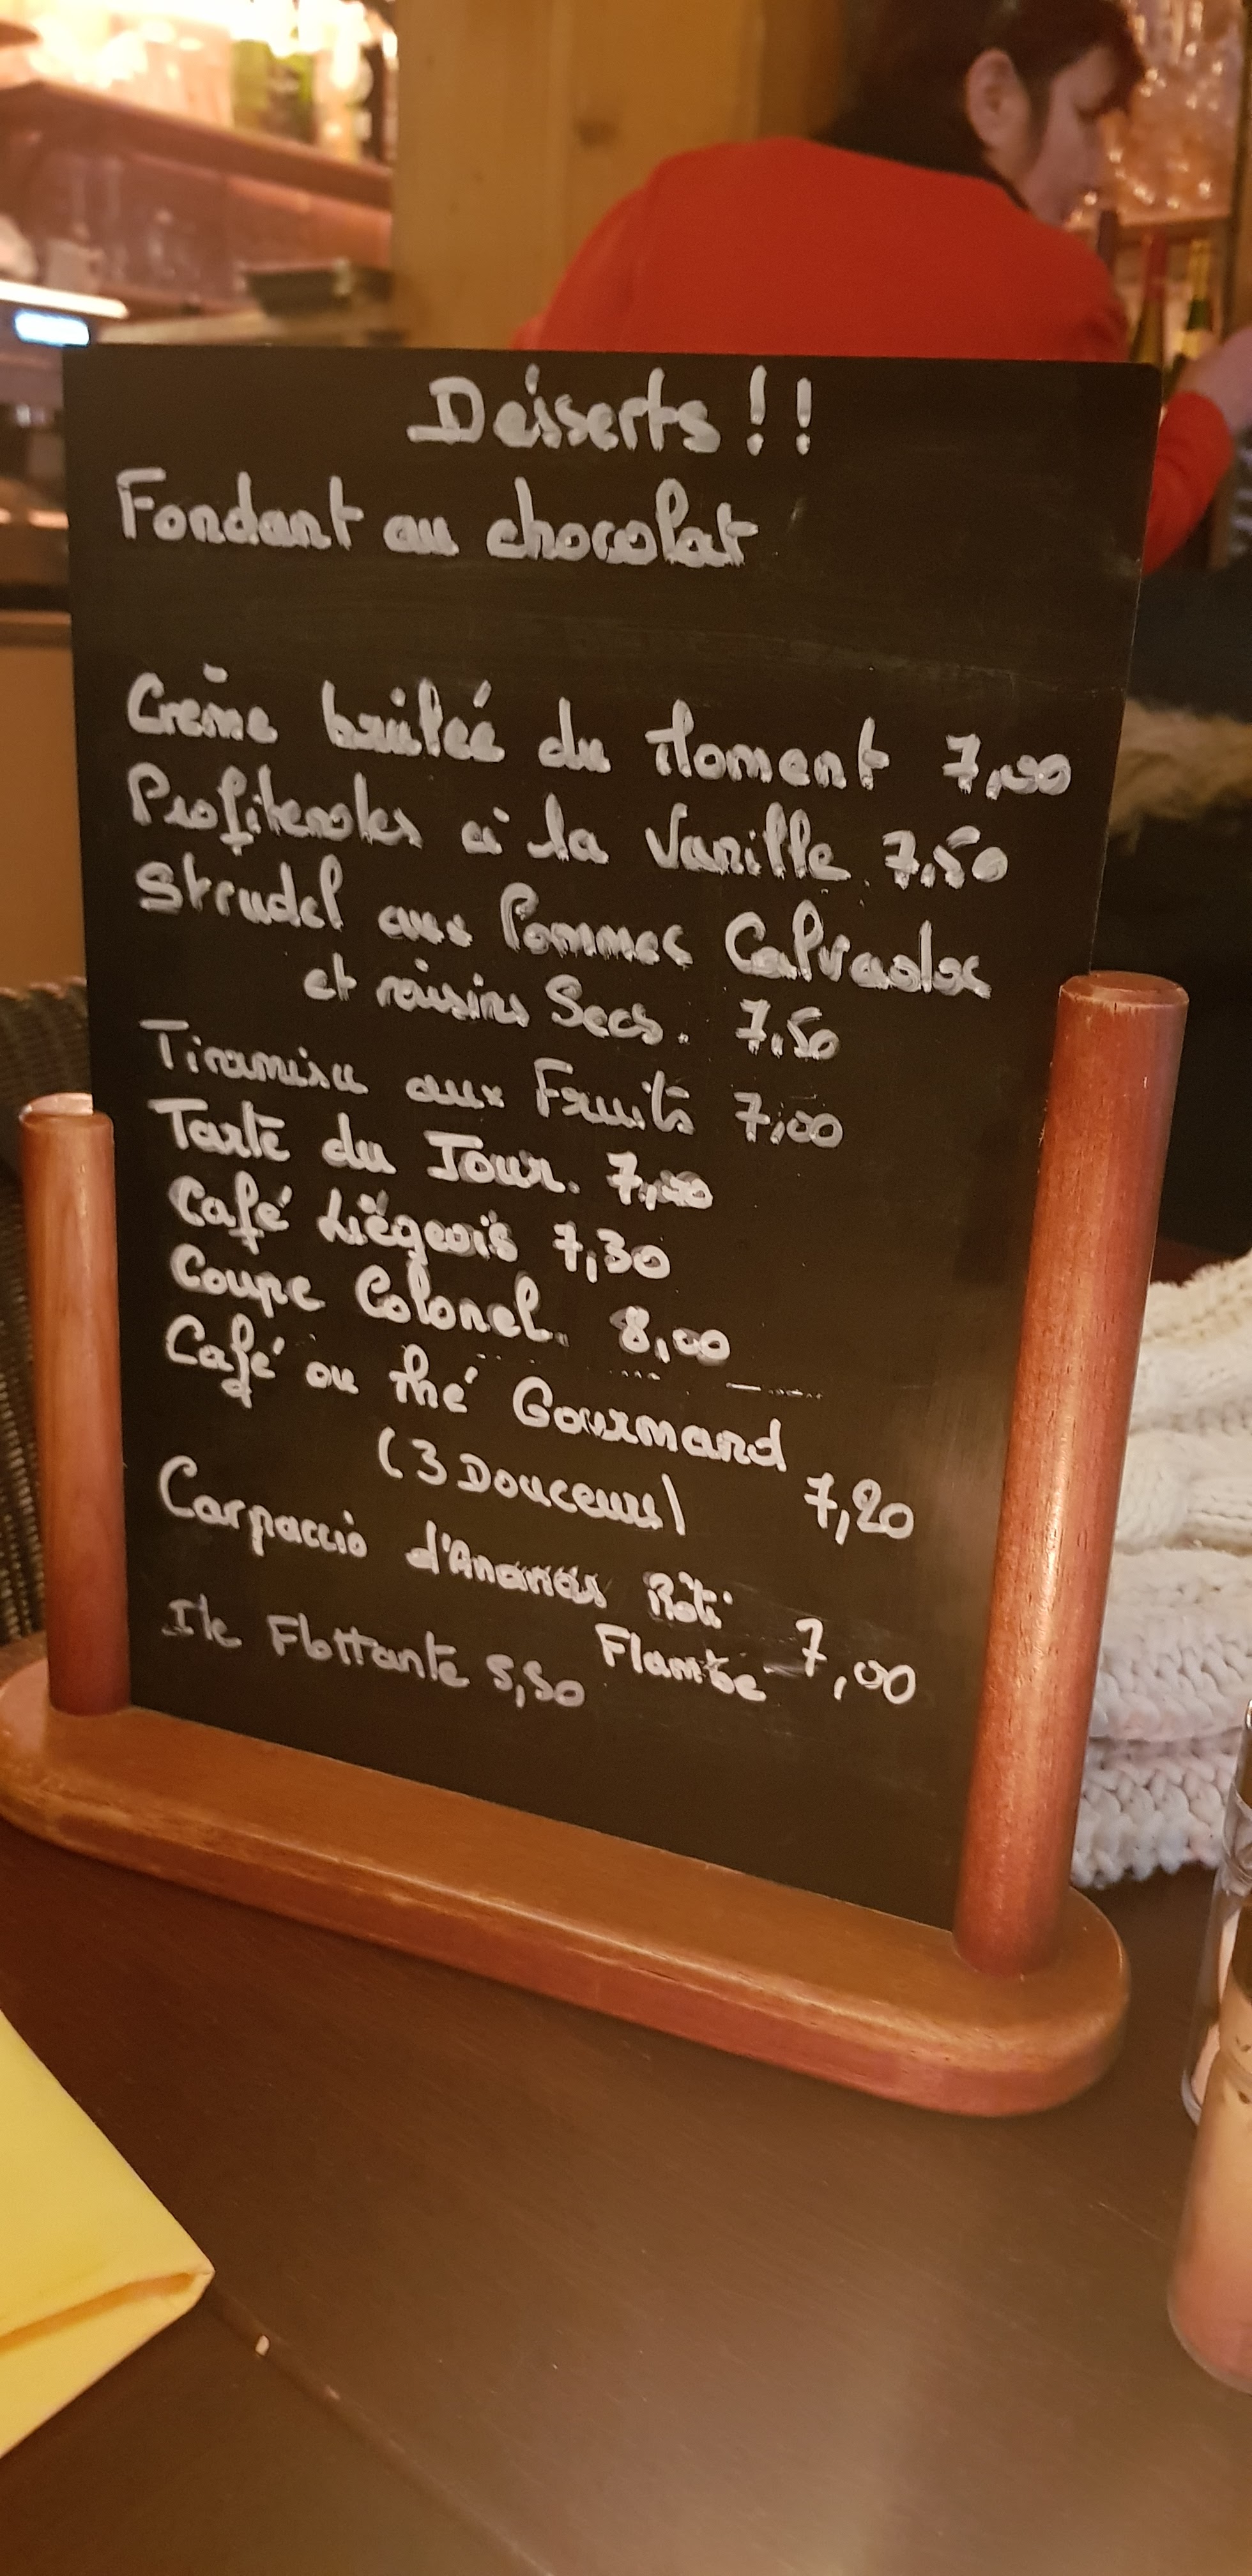 Desserts !!
Fondant au chocolat
Crème brûleé du Moment 7,00
Profiteroles à la Vanille 7,50
Strudel aux Pommes Calvados
et raisins Secs. 7,50
Tiramisu aux Fruits 7,00
Tarte du Jour. 7,00
Café Liègeois 7,30
Coupe Colonel. 8,00
Café ou thé Gourmand
(3 Douceurs) 7,20
Carpaccio d'Ananas Rôti
Flambe 7,00
Ile Flottante 5,50